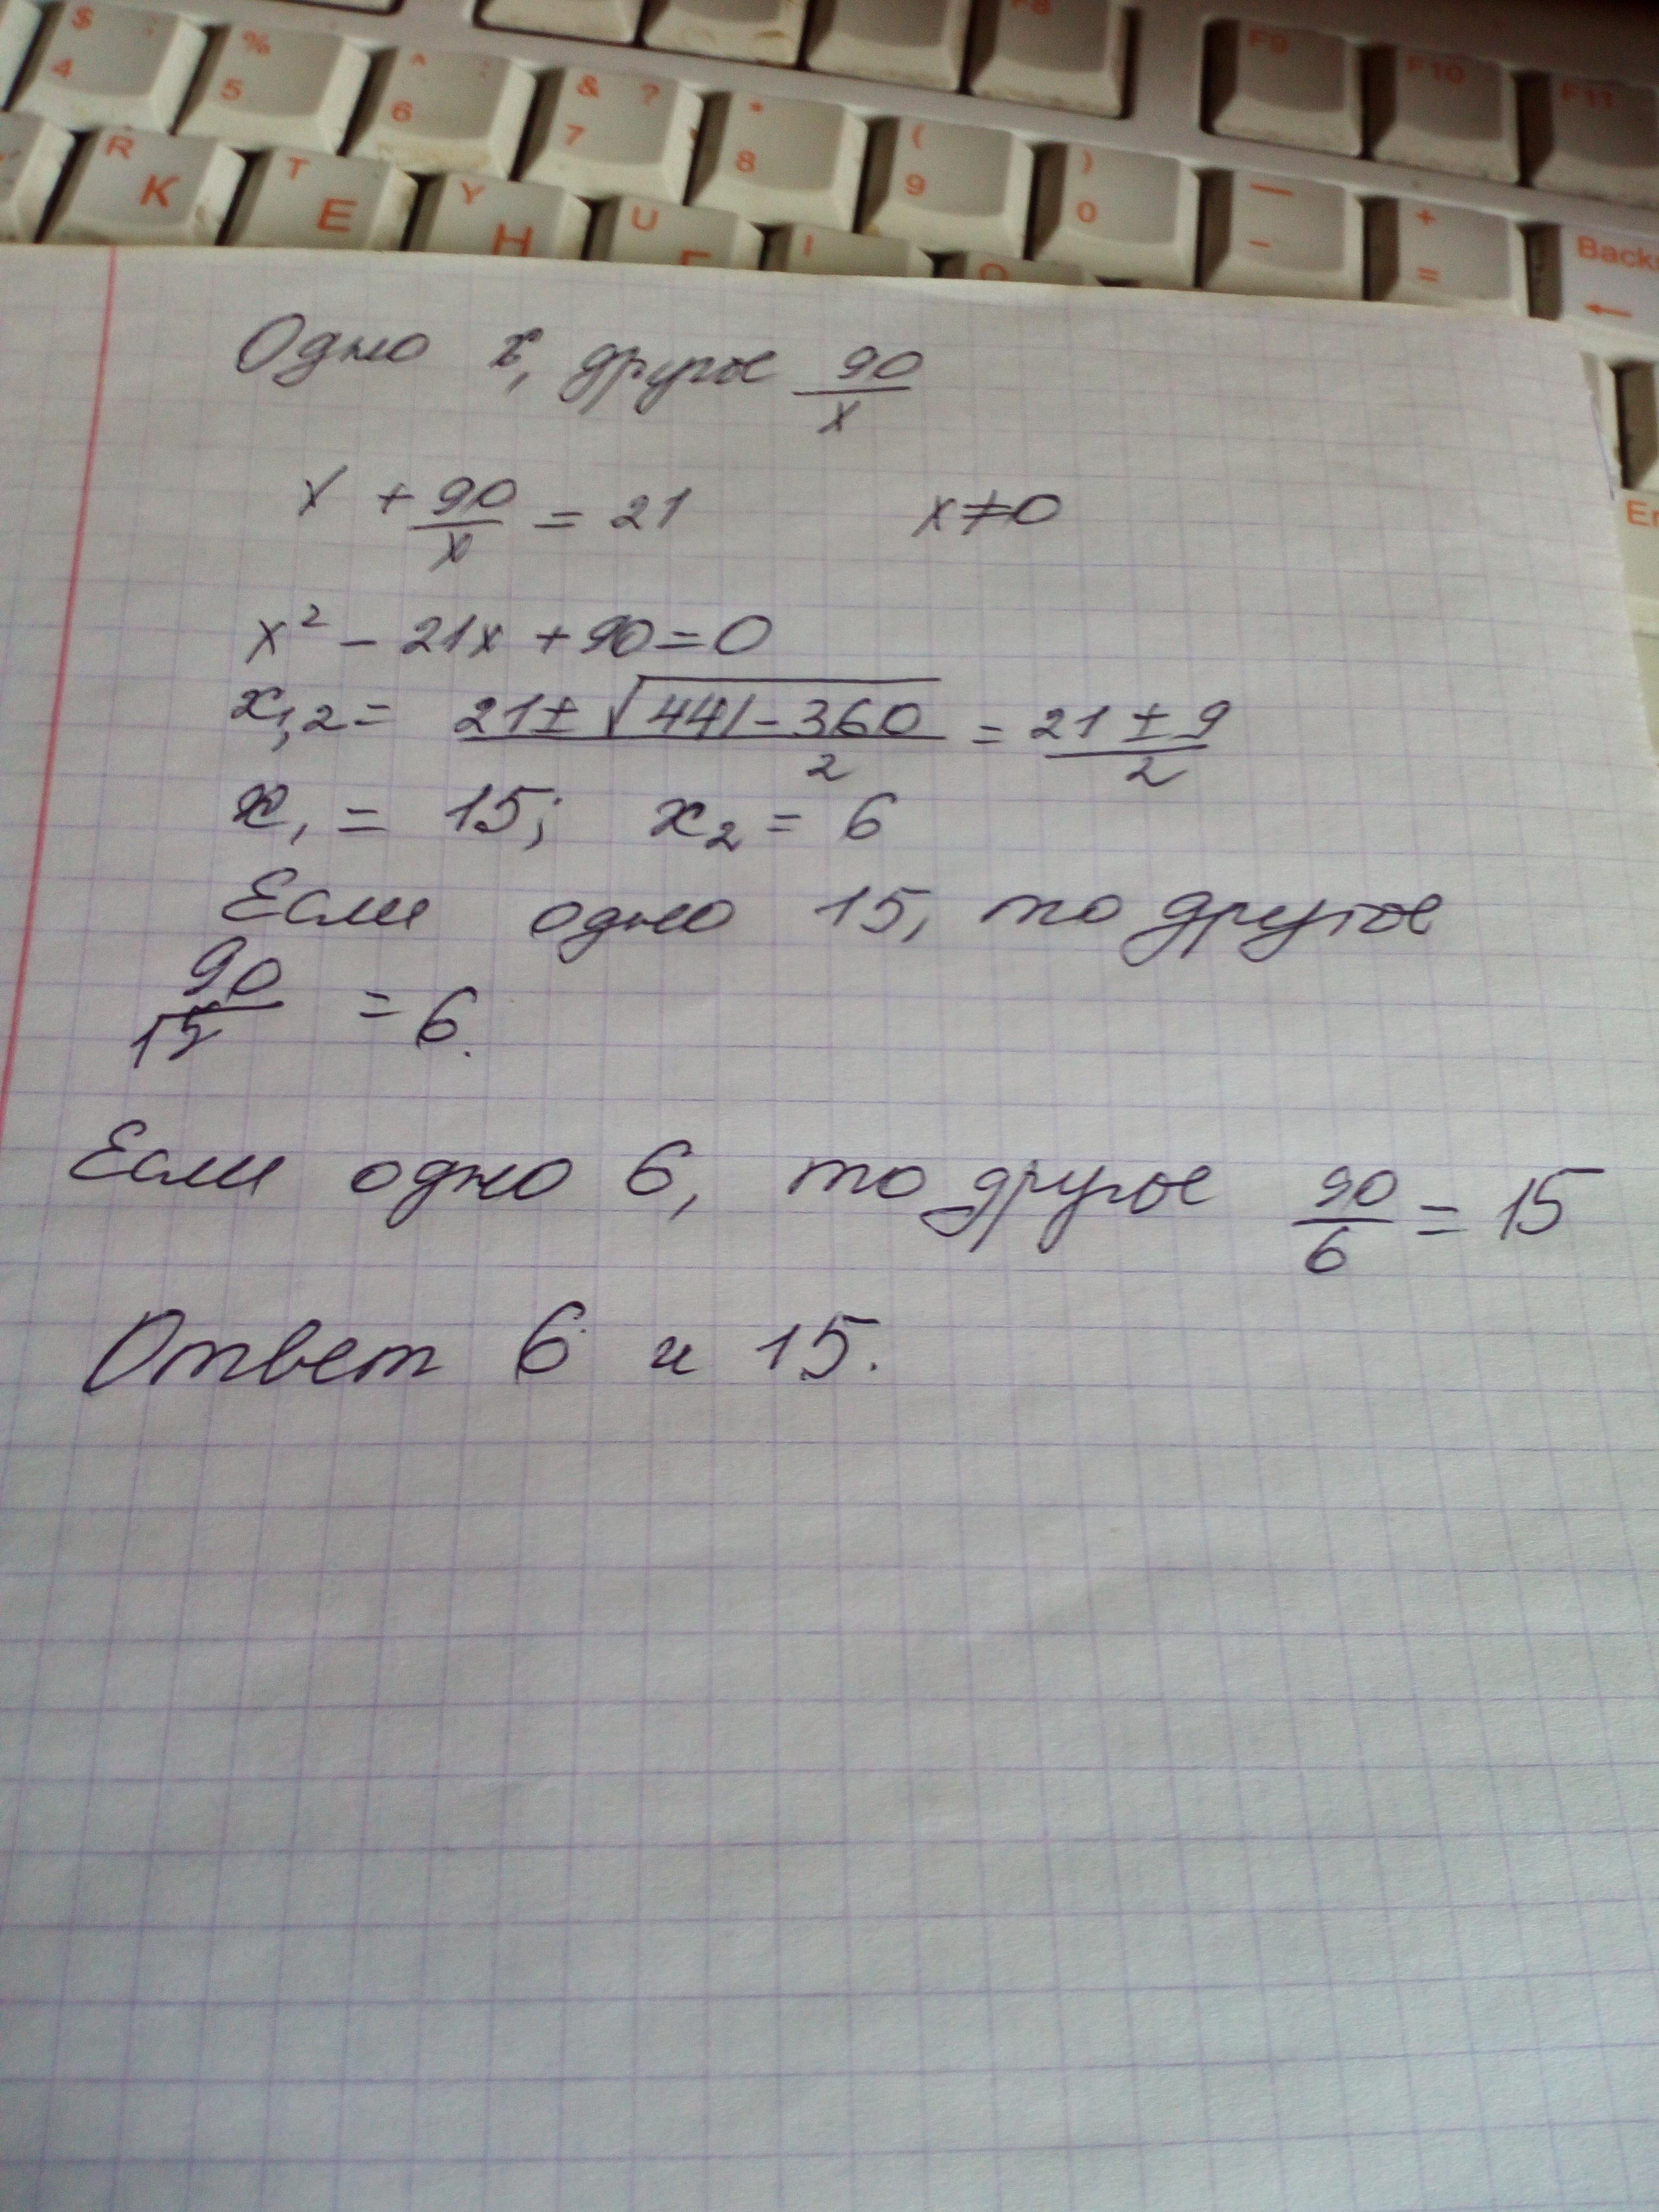 $ ; 4
% 5
^ : 6
& ? 7
* 8
( 9
) 0
— -
+ =
Backs ←
F8
F9
F10
F11
R K
T E
Y H
U Г
I
O
En
Одно x, другое 90/x
x + 90/x = 21 x≠0
x² - 21x + 90 = 0
x1,2 = (21 ± √(441 - 360))/2 = (21 ± 9)/2
x1 = 15; x2 = 6
Если одно 15, то другое
90/15 = 6.
Если одно 6, то другое 90/6 = 15
Ответ 6 и 15.